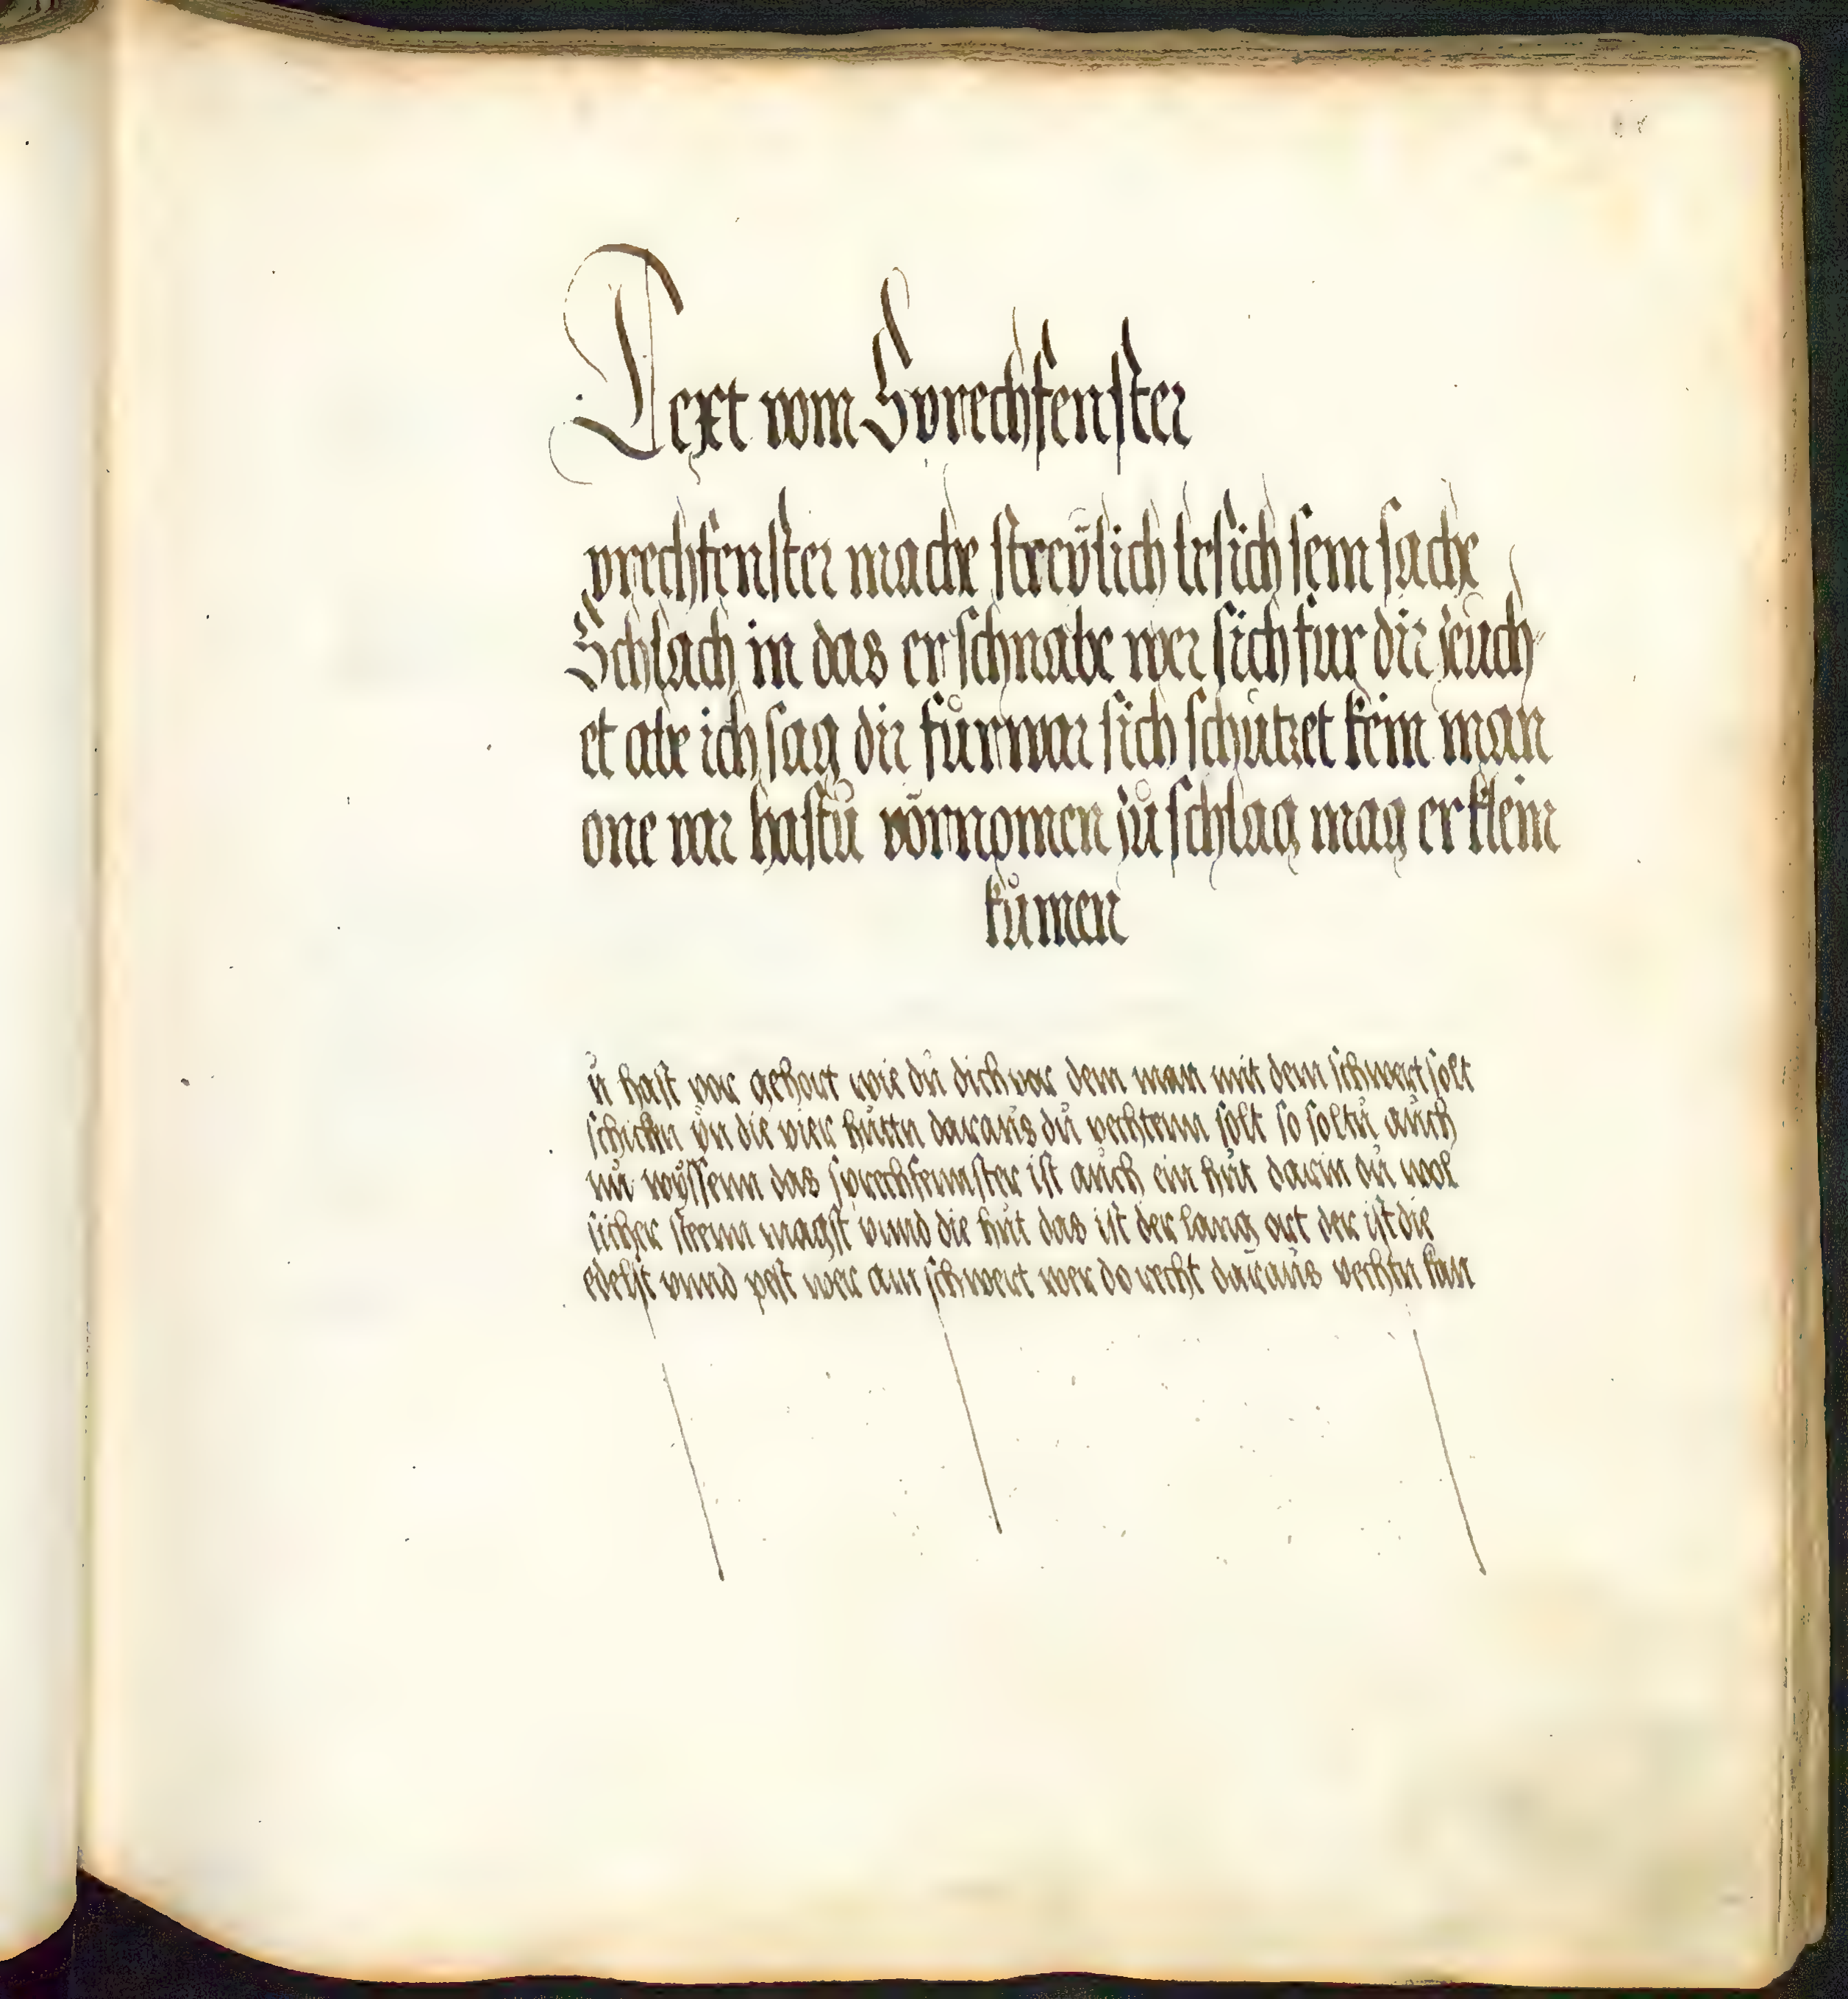 Text vom Sprechfenster
prechfenster mache streÿslich besich sein sache
Schlach in das er schnabe wer sich fur dir zeuch
et abe ich sag dir fůrwar sich schutzet kein man
one var hastu vornomen zů schlag mag er klein
kůmen
ů hast vor gehort wie dů dich vor dem man mit dem schwert solt
schickn yn die vier hůttn daraůs dů vechtenn solt so soltů aůch
nů wÿssenn das sprechfennster ist aůch ein hůt darin dů wol
sicher steenn magst vnnd die hůt das ist der lang ort der ist die
edelst vnnd pest wer am schwert wer do recht daraůs vechtn kan